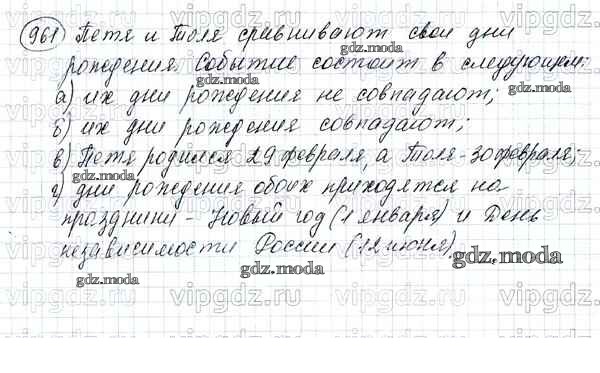 961 Петя и Толя сравнивают свои дни
рождения. Событие состоит в следующем:
а) их дни рождения не совпадают;
б) их дни рождения совпадают;
в) Петя родился 29 февраля, а Толя - 30 февраля;
г) дни рождения обоих приходятся на
праздники - Новый год (1 января) и День
независимости России (12 июня).
gdz.moda
vipgdz.ru